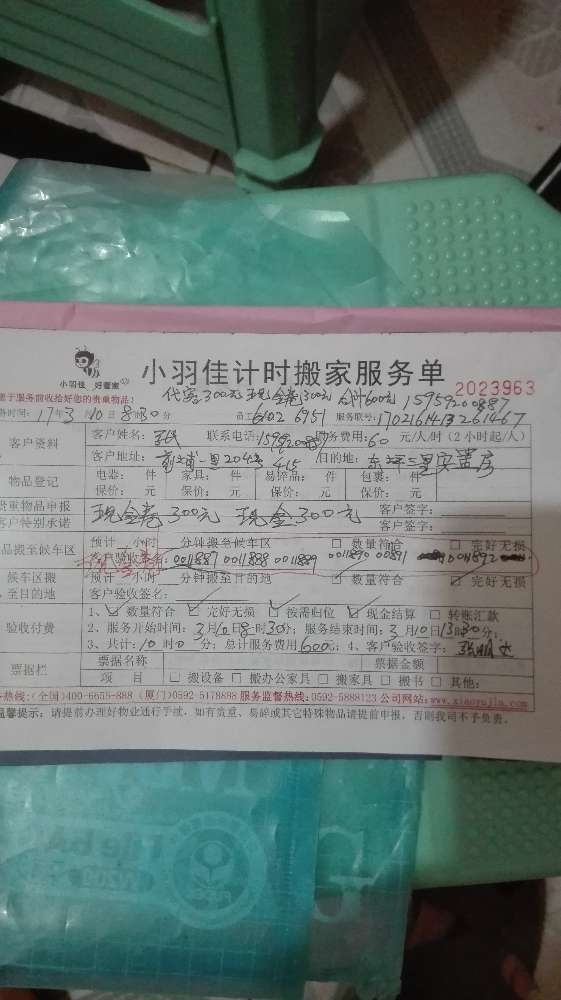 小羽佳 好管家
小羽佳计时搬家服务单
2023963
300元 现金卷300元 合计600元 15959200887
务时间:17年3月10日8时30分 员工6102 6951 服务联号:
客户资料
客户姓名: 联系电话: 服务费用:60 元/人/时(2小时起/人)
客户地址: 204 415 目的地:
物品登记
电器: 件 家具: 件 易碎品: 件 包裹: 件
保价: 元 保价: 元 保价: 元 保价: 元
贵重物品申报
客户特别承诺
现金卷300元 现金300元
客户签字:
客户签字:
品搬至候车区
预计 小时 分钟搬至候车区 □ 数量符合 □ 完好无损
客户验收签 0011887 0011888 0011889 0011890 00891 0011892
候车区搬
至目的地
预计 小时 分钟搬至目的地 数量符合 完好无损
客户验收签名:
验收付费
1、 数量符合 完好无损 按需归位 现金结算 □ 转账汇款
2、服务开始时间:3月10日8时30分;服务结束时间:3月10日13时30分;
3、共计:10时0分;总计服务费用600元;4、客户验收签字:
票据栏
票据名称 票据金额
项 目 □ 搬设备 □ 搬办公家具 □ 搬家具 □ 搬书 □ 其他:
热线:(全国)400-6655-888 (厦门)0592-5178888 服务监督热线:0592-5888123 公司网站:www.xiaoyujia.com
温馨提示:请提前办理好物业通行手续,如有贵重、易碎或其它特殊物品请提前申报,否则我司不予负责。